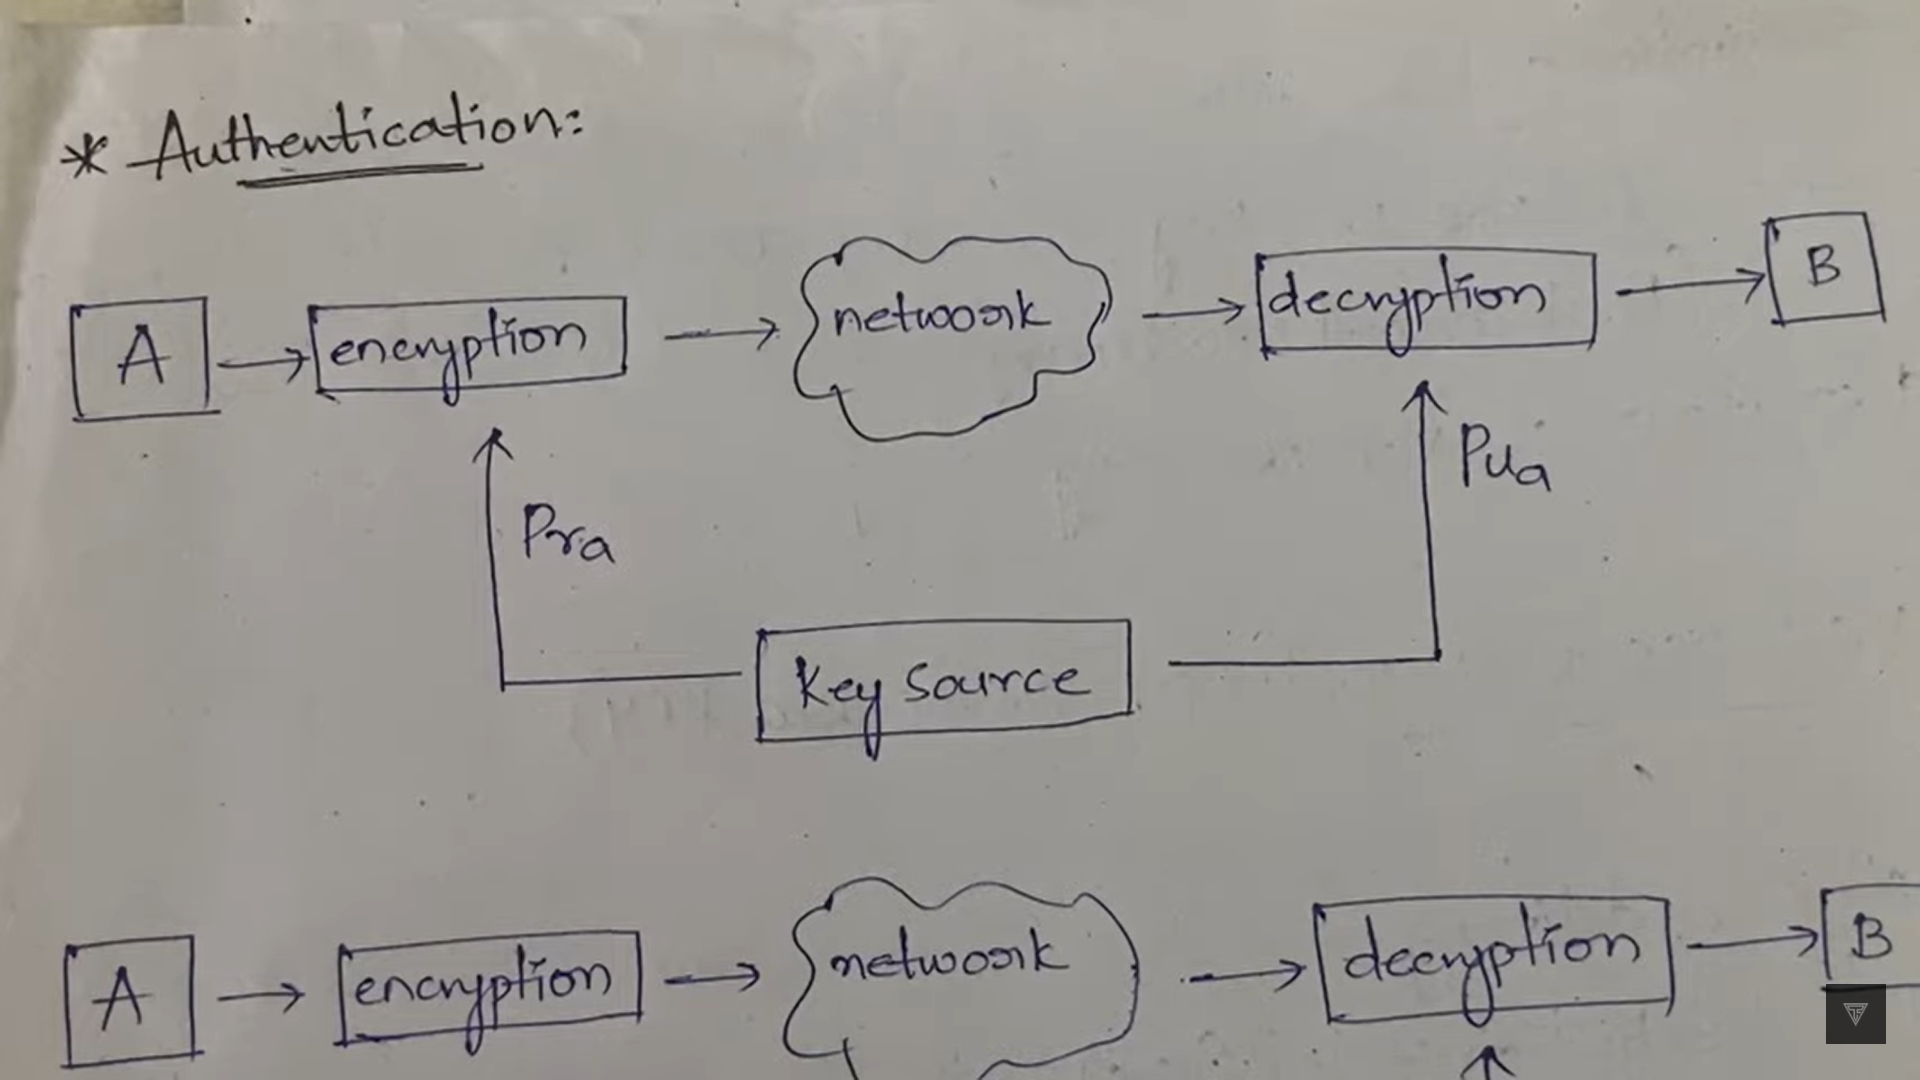 * Authentication:
A
encryption
network
decryption
B
Pra
Pua
Key Source
A
encryption
network
decryption
B